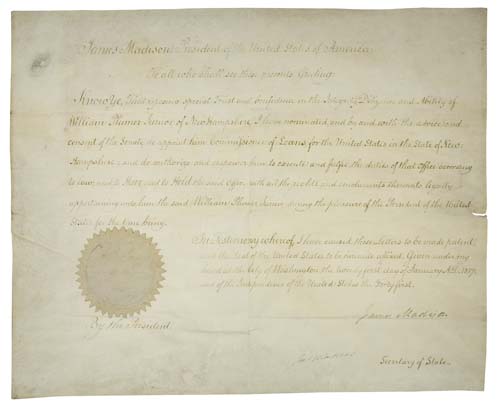 James Madison President of the United States of America,
To all who shall see these presents Greeting:
Know Ye, That reposing special Trust and Confidence in the Integrity Diligence and Ability of
William Plumer Junior of New Hampshire, I have nominated, and by and with the advice and
consent of the Senate, do appoint him Commissioner of Loans, for the United States in the State of New
Hampshire; and do authorize and empower him to execute and fulfil the duties of that office according
to law; and to Have and to Hold the said office, with all the rights and emoluments thereunto legally
appertaining unto him the said William Plumer Junior, during the pleasure of the President of the United
States for the time being.
In Testimony whereof, I have caused these Letters to be made patent
and the Seal of the United States to be hereunto affixed. Given under my
hand at the City of Washington the twenty first day of January A.D. 1817,
and of the Independence of the United States the Forty first.
James Madison
By the President
Secretary of State.